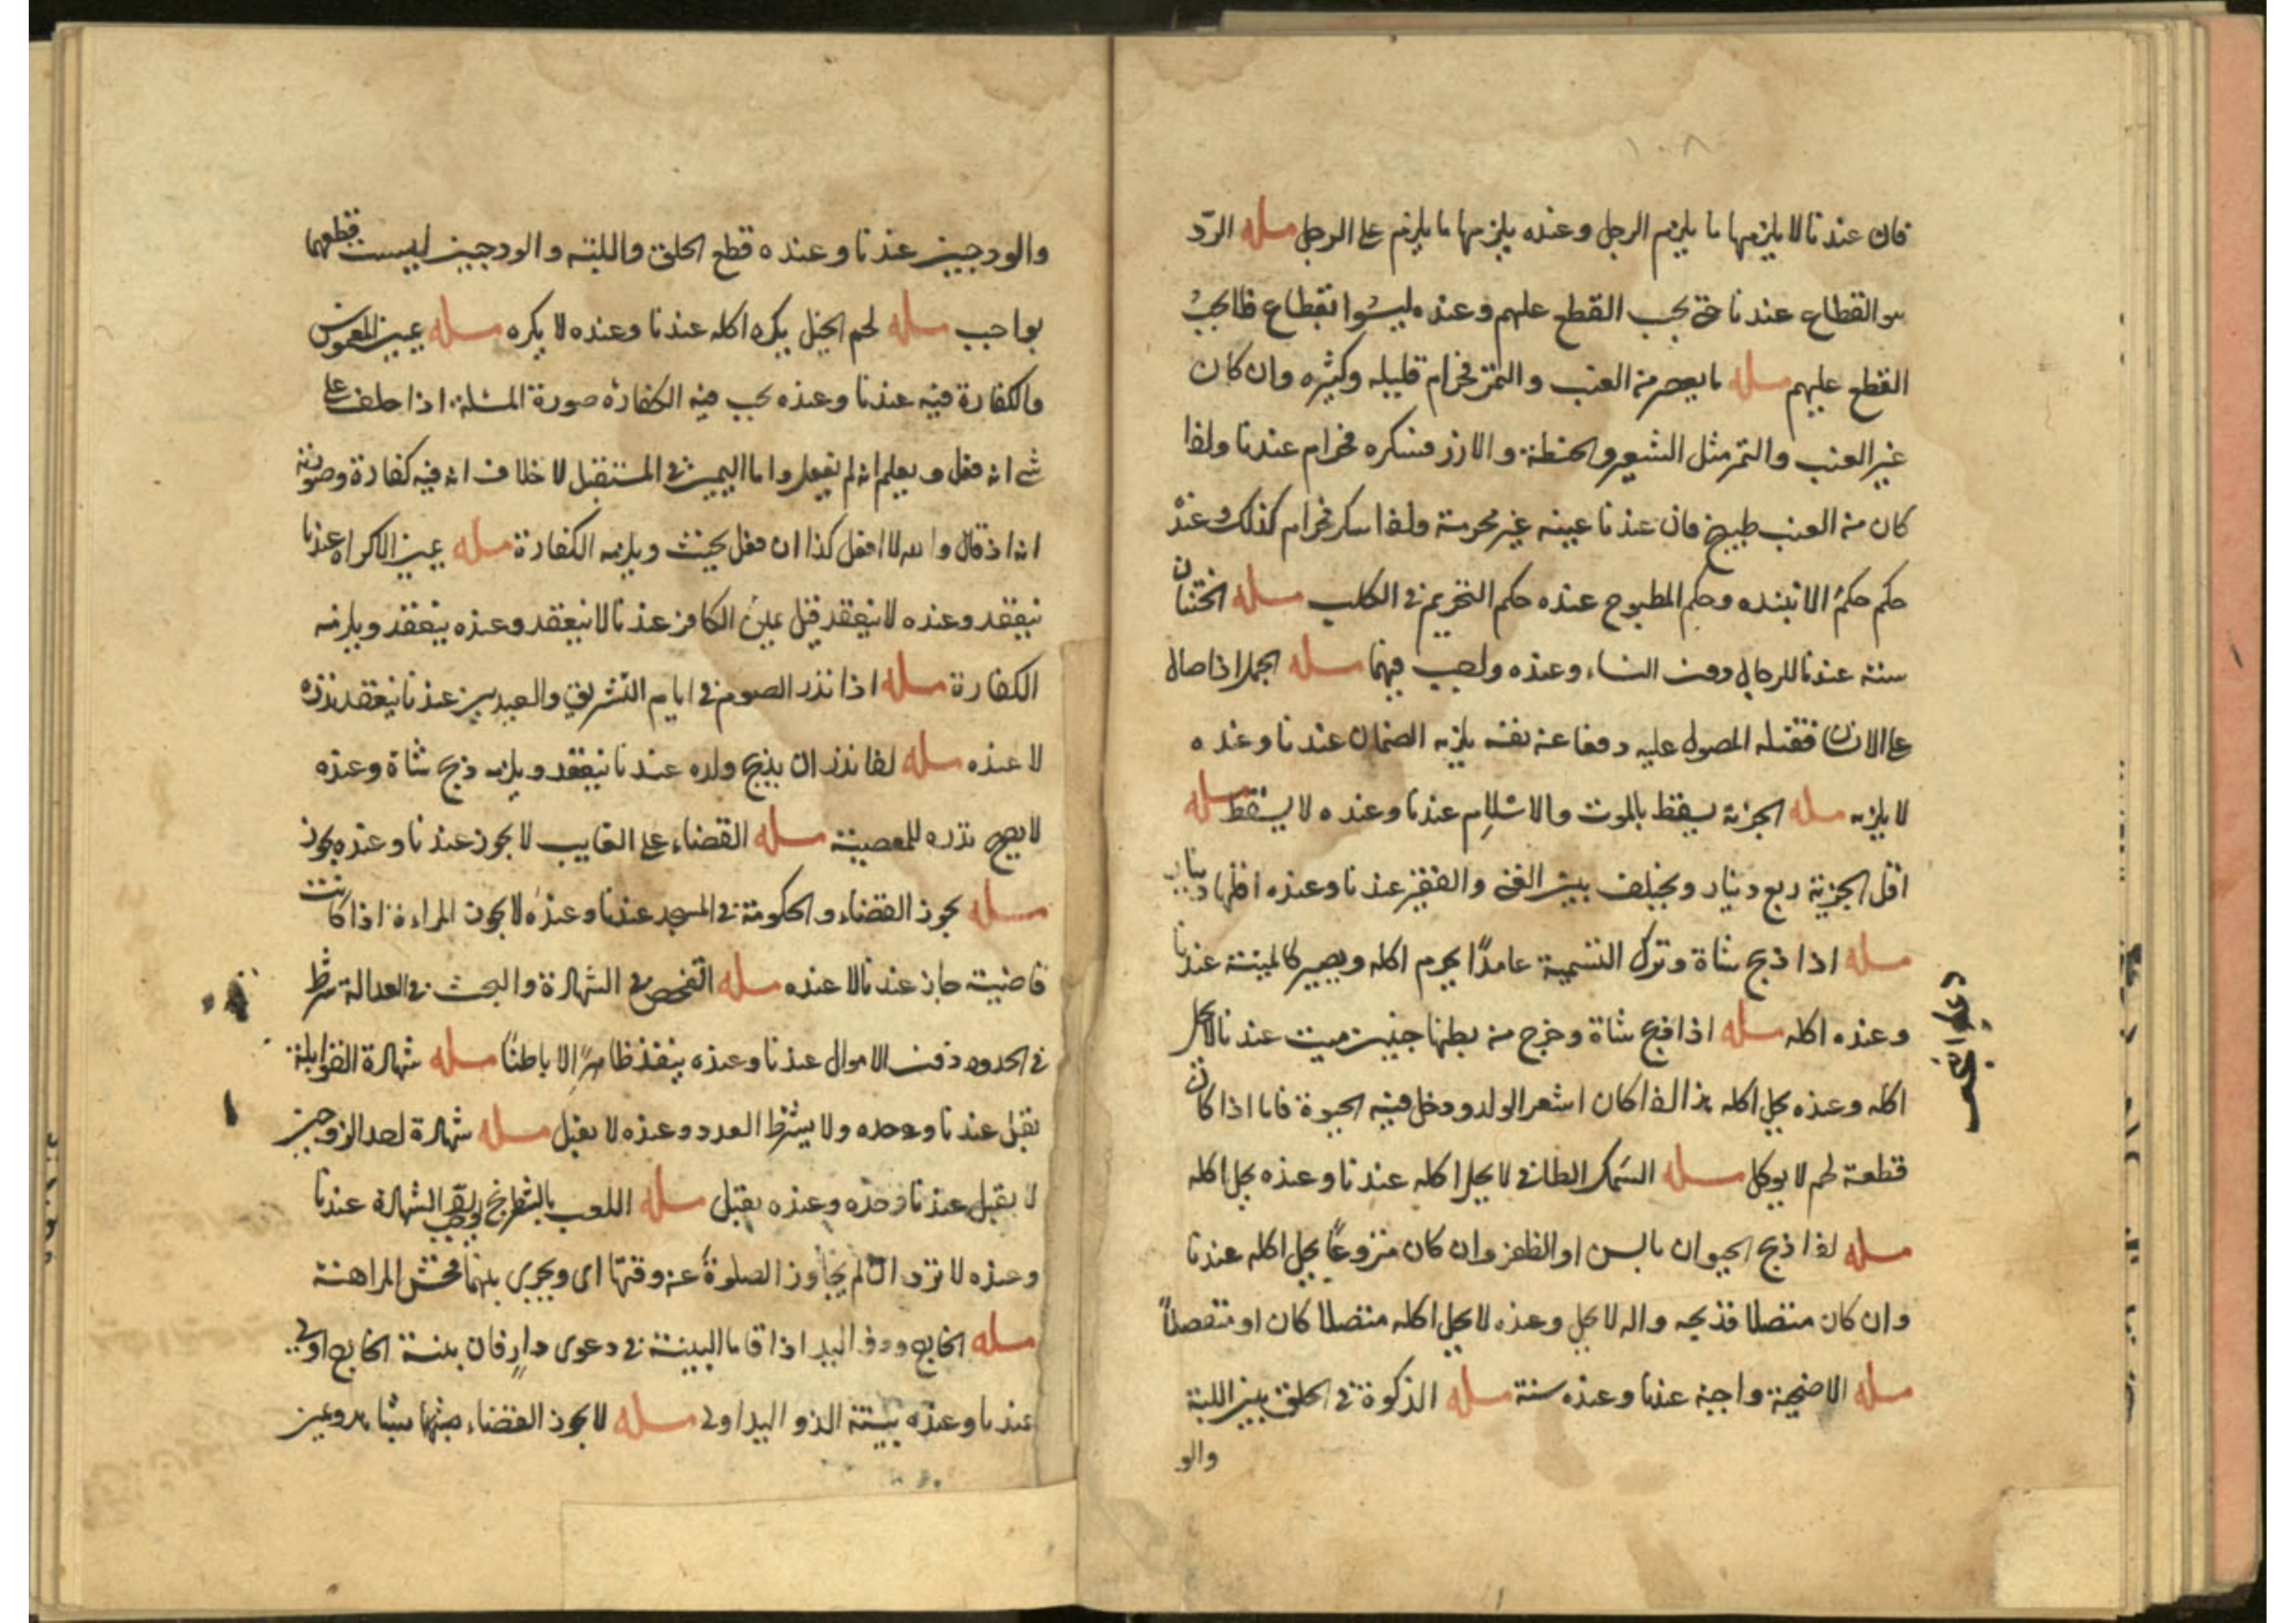 ١٠٨
فان عندنا لا يلزمها ما يلزم الرجل وعنده يلزمها ما يلزم على الرجل مسله الرد
القطاع عندنا حتى يجب القطع عليهم وعنده ليسوا بقطاع فلا يجب
القطع عليهم مسله ما يعصر من العنب والتمر فحرام قليله وكثيره وان كان
غير العنب والتمر مثل الشعير والحنطة والارز فسكره فحرام عندنا ولذا
كان من العنب طبيخ فان عندنا عينه غير محرمة ولذا سكر فحرام كذلك وعنده
حكم حكم الانبذه وحكم المطبوح عنده حكم التحريم في الكلب مسله الختان
سنة عندنا للرجال دون النساء وعنده واجب فيهما مسله الجمل اذا صال
على الانسان فقتله المصول عليه دفعا عن نفسه يلزمه الضمان عندنا وعنده
لا يلزمه مسله الجزية يسقط بالموت والاسلام عندنا وعنده لا يسقط مسله
اقل الجزية ربع دينار ويختلف بين الغنى والفقير عندنا وعنده اقلها دينار
مسله اذا ذبح شاة وترك التسمية عامدًا يحرم اكله ويصير كالميتة عندنا
وعنده اكله مسله اذا ذبح شاة وخرج من بطنها جنين ميت عندنا لا يحل
اكله وعنده يحل اكله هذا اذا كان اشعر الولد ودخل فيه الحيوة فاما اذا كان
قطعة لحم لا يوكل مسله السمك الطافى لا يحل اكله عندنا وعنده يحل اكله
مسله لذا ذبح الحيوان بالسن او الظفر وان كان منزوعًا يحل اكله عندنا
وان كان متصلا فذبحه واله لا يحل وعنده لا يحل اكله متصلا كان او منفصلاً
مسله الاضحية واجبة عندنا وعنده سنة مسله الذكوة في الحلق بين اللبة
والو
والودجين عندنا وعنده قطع الحلق واللبة والودجين ليست قطعهما
بواجب مسله لحم الخيل يكره اكله عندنا وعنده لا يكره مسله يمين الغموس
والكفارة فيه عندنا وعنده يجب فيه الكفارة صورة المسلة اذا حلف على
شى انه فعل ويعلم انه لم يفعل واما اليمين في المستقبل لا خلاف انه فيه كفارة وصورته
انه اذ قال والله لا افعل كذا ان فعل يحنث ويلزمه الكفارة مسله يمين الاكراه عندنا
ينعقد وعنده لا ينعقد قيل يمين الكافر عندنا لا ينعقد وعنده ينعقد ويلزمه
الكفارة مسله اذا نذر الصوم في ايام التشريق والعيدين عندنا ينعقد نذره
لا عنده مسله لذا نذر ان يذبح ولده عندنا ينعقد ويلزمه ذبح شاة وعنده
لا يصح نذره للمعصية مسله القضاء على الغايب لا يجوز عندنا وعنده يجوز
مسله يجوز القضاء والحكومة في المسجد عندنا وعنده لا يجوز المراءة اذا كانت
قاضية جاز عندنا لا عنده مسله التفحص في الشهادة والبحث في العدالة شرط
في الحدود دون الاموال عندنا وعنده ينفذ ظاهرًا لا باطنًا مسله شهادة القوابلة
يقبل عندنا وحده ولا يشترط العدد وعنده لا يقبل مسله شهادة احد الزوجين
لا يقبل عندنا وحده وعنده يقبل مسله اللعب بالشطرنج الشهادة عندنا
وعنده لا ترد ان لم يجاوز الصلوة عن وقتها اى ويجرى بينهما فحش المراهنة
مسله الخارج وذو اليد اذا قاما البينة في دعوى دار فان بينة الخارج اولى
عندنا وعنده بينة الذو اليد اولى مسله لا يجوز القضاء بشاهد ويمين